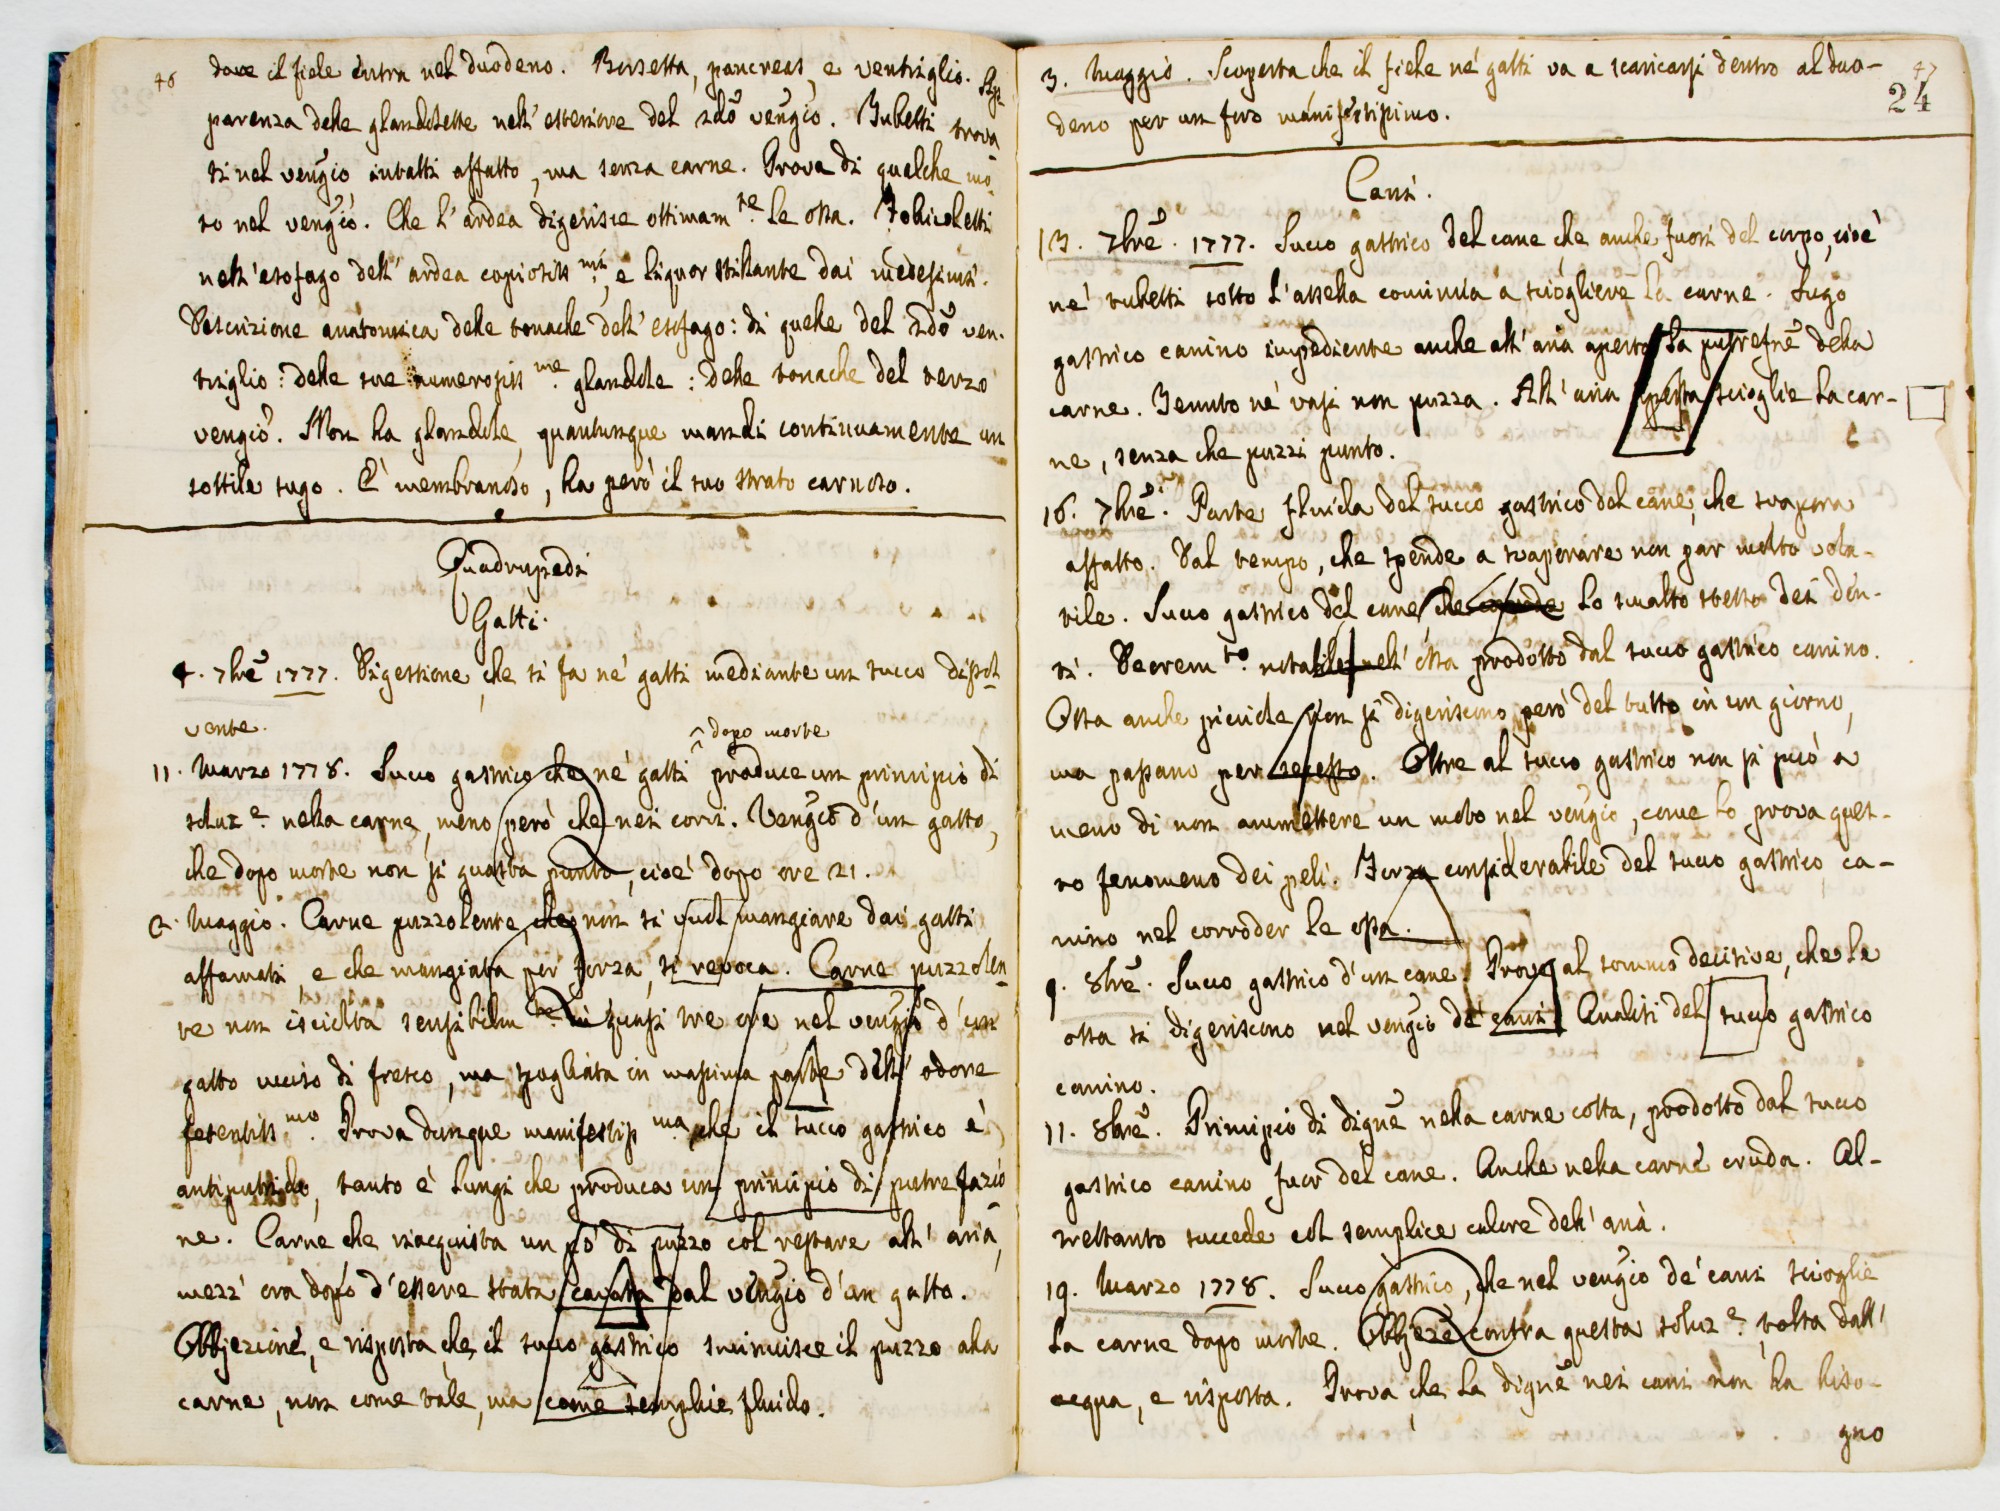 46
dove il fiele entra nel duodeno. Borsetta, pancreas, e ventriglio. Ap-
parenza delle glandolette nell'esteriore del 2dõ vengĩo. Tubetti trova
ti nel vengĩo intatti affatto, ma senza carne. Prova di qualche mo-
to nel vengĩo. Che l'ardea digerisce ottimam.te le ossa. Follicoletti
nell'esofago dell'ardea copiosiss.mi, e liquor stillante dai medesimi.
Descrizione anatomica delle tonache dell'esofago: di quelle del 2dõ ven-
triglio: delle sue numerosiss.me glandole: delle tonache del terzo
vengĩo. Non ha glandole, quantunque mandi continuamente un
sottile sugo. È membranoso, ha però il suo strato carnoso.
Quadrupedi
Gatti.
4. 7brẽ 1777. Digestione, che si fa ne' gatti mediante un succo dissol
vente.
11. Marzo 1778. Succo gastrico che ne' gatti ^dopo morte produce un principio di
soluz.e nella carne, meno però che nei corvi. Vengĩo d'un gatto,
che dopo morte non si guasta punto, cioè dopo ore 21.
2. Maggio. Carne puzzolente, che non si vuol mangiare dai gatti
affamati, e che mangiata per forza, si revoca. Carne puzzolen
te non isciolta sensibilm.te in quasi tre ore nel vengĩo d'un
gatto ucciso di fresco, ma spogliata in massima parte dell'odore
fetentiss.mo. Prova dunque manifestiss.ma che il succo gastrico è
antiputrido, tanto è lungi che produca un principio di putrefazio
ne. Carne che riacquista un pò di puzzo col restare all'aria,
mezz'ora dopo d'essere stata cavata dal vengĩo d'un gatto.
Obbjezionẽ, e risposta che il succo gastrico sminuisce il puzzo alla
carne, non come tale, ma come semplice fluido.
47
24
3. Maggio. Scoperta che il fiele ne' gatti va a scaricarsi dentro al duo-
deno per un foro manifestissimo.
Cani.
13. 7brẽ. 1777. Succo gastrico del cane che anche fuori del corpo, cioè
ne' tubetti sotto l'assella comincia a sciogliere la carne. Sugo
gastrico canino impediente anche all'aria aperta la putrefnẽ della
carne. Tenuto ne' vasi non puzza. All'aria aperta scioglie la car-
ne, senza che puzzi punto.
16. 7brẽ. Parte fluida del succo gastrico del cane, che svapora
affatto. Dal tempo, che spende a svaporare non par molto vola-
tile. Succo gastrico del cane che corrode lo smalto stesso dei den-
ti. Decrem.to notabile nell'ossa prodotto dal succo gastrico canino.
Ossa anche picciole non si digeriscono però del tutto in un giorno,
ma passano per secesso. Oltre al succo gastrico non si può a
meno di non ammettere un moto nel vengĩo, come lo prova ques-
to fenomeno dei peli. Forza considerabile del succo gastrico ca-
nino nel corroder le ossa.
9. 8brẽ. Succo gastrico d'un cane. Prove al sommo decisive, che le
ossa si digeriscono nel vengĩo de' cani. Qualità del succo gastrico
canino.
11. 8brẽ. Principio di dignẽ nella carne cotta, prodotto dal succo
gastrico canino fuor del cane. Anche nella carne cruda. Al-
trettanto succede col semplice calore dell'aria.
19. Marzo 1778. Succo gastrico, che nel vengĩo de' cani scioglie
la carne dopo morte. Obbjezẽ contra questa soluz.e, tolta dall'
acqua, e risposta. Prova che la dignẽ nei cani non ha biso-
gno